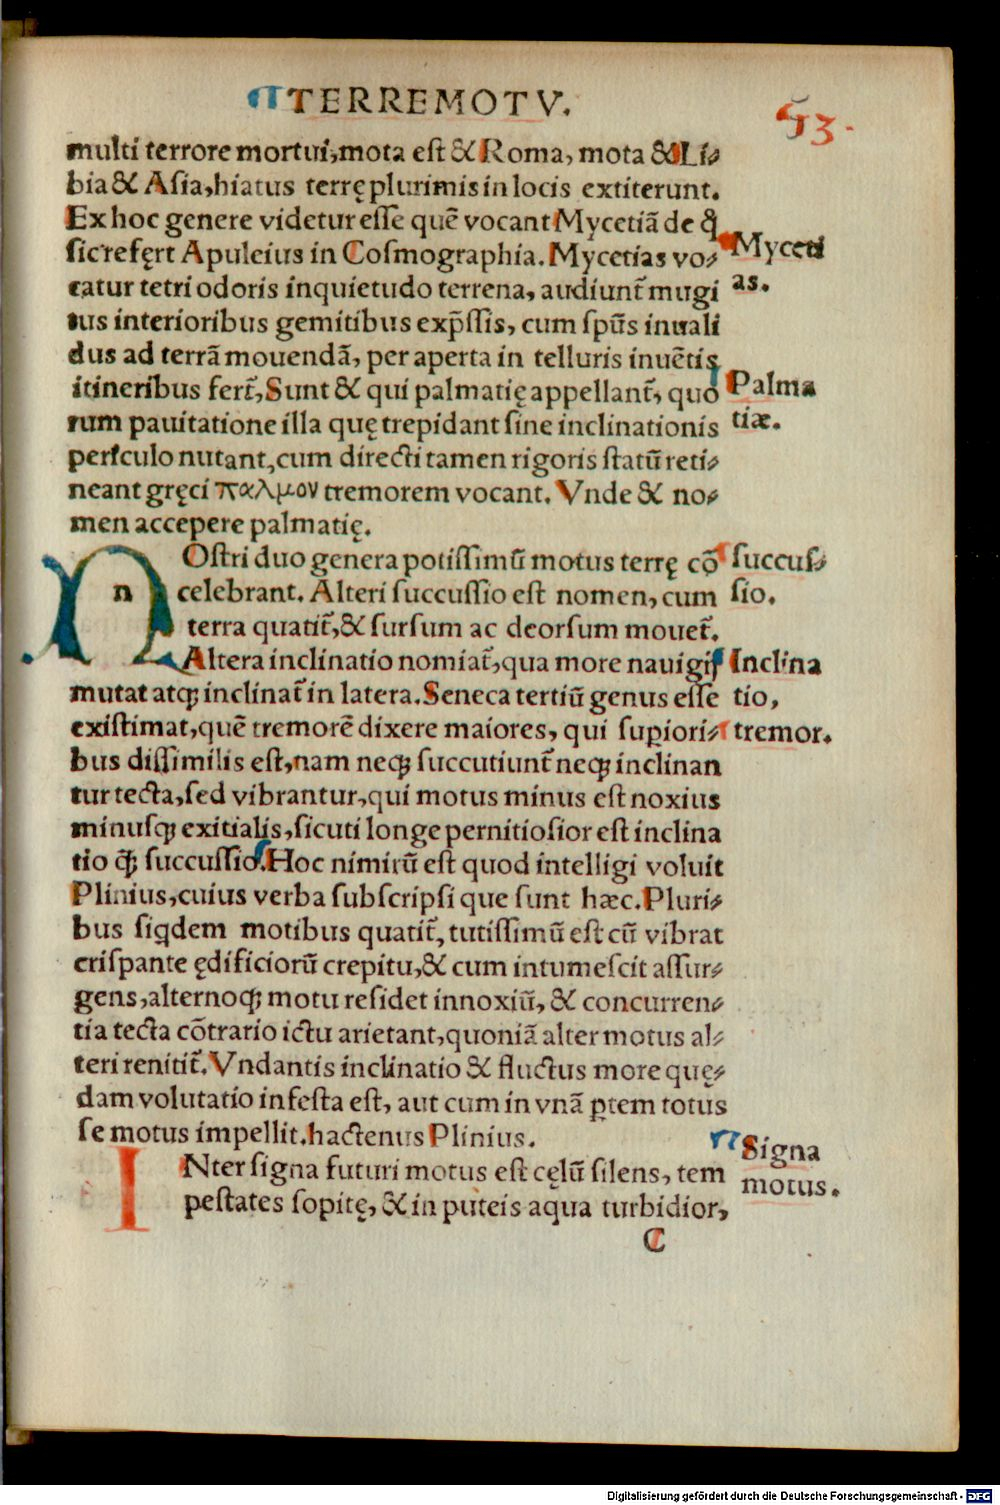 TERREMOTV.
53.
multi terrore mortui, mota est & Roma, mota & Li-
bia & Asia, hiatus terrę plurimis in locis extiterunt.
Ex hoc genere videtur esse quē vocant Mycetiā de q̄
sic refert Apuleius in Cosmographia. Mycetias vo-
catur tetri odoris inquietudo terrena, audiunt̃ mugi
tus interioribus gemitibus exp̄ssis, cum sp̄us inuali
dus ad terrā mouendā, per aperta in telluris inuētis
itineribus fert̃, Sunt & qui palmatię appellant̃, quo
rum pauitatione illa quę trepidant sine inclinationis
periculo nutant, cum directi tamen rigoris statū reti-
neant gręci παλμον tremorem vocant. Vnde & no-
men accepere palmatię.
Myceti
as.
Palma
tiæ.
n
Ostri duo genera potissimū motus terrę cō
celebrant. Alteri succussio est nomen, cum
terra quatit̃, & sursum ac deorsum mouet̃.
Altera inclinatio nomiat̃, qua more nauigij
mutat atq; inclinat̃ in latera. Seneca tertiū genus esse
existimat, quē tremorē dixere maiores, qui supiori-
bus dissimilis est, nam neq; succutiunt̃ neq; inclinan
tur tecta, sed vibrantur, qui motus minus est noxius
minusq; exitialis, sicuti longe pernitiosior est inclina
tio q̃ succussio. Hoc nimirū est quod intelligi voluit
Plinius, cuius verba subscripsi que sunt hæc. Pluri-
bus siqdem motibus quatit̃, tutissimū est cū vibrat
crispante ędificiorū crepitu, & cum intumescit assur-
gens, alternoq; motu residet innoxiū, & concurren-
tia tecta cōtrario ictu arietant, quoniā alter motus al-
teri renitit̃. Vndantis inclinatio & fluctus more quę-
dam volutatio infesta est, aut cum in vnā ptem totus
se motus impellit. hactenus Plinius.
succus-
sio.
Inclina
tio,
tremor.
I
Nter signa futuri motus est cęlū silens, tem
pestates sopitę, & in puteis aqua turbidior,
Signa
motus.
C
Digitalisierung gefördert durch die Deutsche Forschungsgemeinschaft - DFG